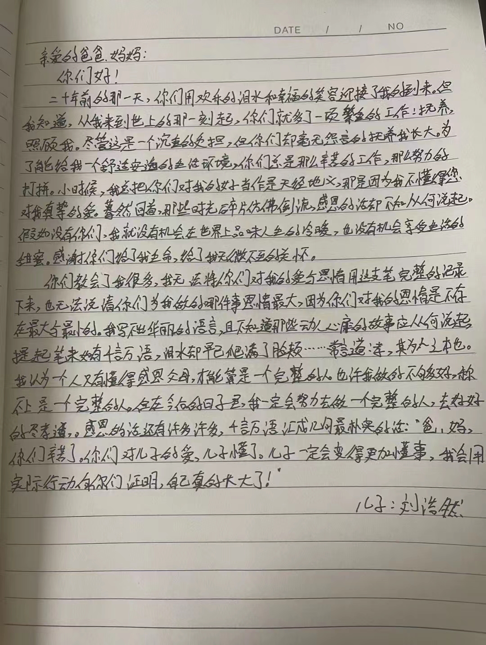 DATE / / NO
亲爱的爸爸.妈妈:
你们好!
二十年前的那一天,你们用欢乐的泪水和幸福的笑容迎接了我的到来.但
我知道,从我来到世上的那一刻起,你们就多了一项繁重的工作:抚养,
照顾我.尽管这是一个沉重的负担,但你们却毫无怨言的抚养我长大,为
了能给我一个舒适安逸的生活环境,你们总是那么辛苦的工作,那么努力的
打拼.小时候,我总把你们对我的好当作是天经地义,那是因为我不懂得您
对我真挚的爱.蓦然回首,那些时光碎片仿佛倒流,感恩的话却不知从何说起.
假如没有你们,我就没有机会在世界上品味人生的冷暖,也没有机会享受生活的
甜蜜.感谢你们给了我生命,给了我无微不至的关怀.
你们教会了我很多,我无法将你们对我的爱与恩情用这支笔完整的记录
下来,也无法说清你们为我做的哪件事恩情最大,因为你们对我的恩情是不存
在最大与最小的.我写不出华丽的语言,且不知道那些动人心扉的故事应从何说起
提起笔来好有千言万语,泪水却早已爬满了脸颊……常言道:孝,其为人之本也.
我认为一个人只有懂得感恩父母,才能算是一个完整的人.也许我做的不够好,称
不上是一个完整的人.但在今后的日子里,我一定会努力去做一个完整的人,去好好
的尽孝道.感恩的话还有许多许多,千言万语汇成几句最朴实的话:"爸,妈,
你们辛苦了.你们对儿子的爱,儿子懂了.儿子一定会变得更加懂事,我会用
实际行动向你们证明,自己真的长大了!"
儿子:刘浩然